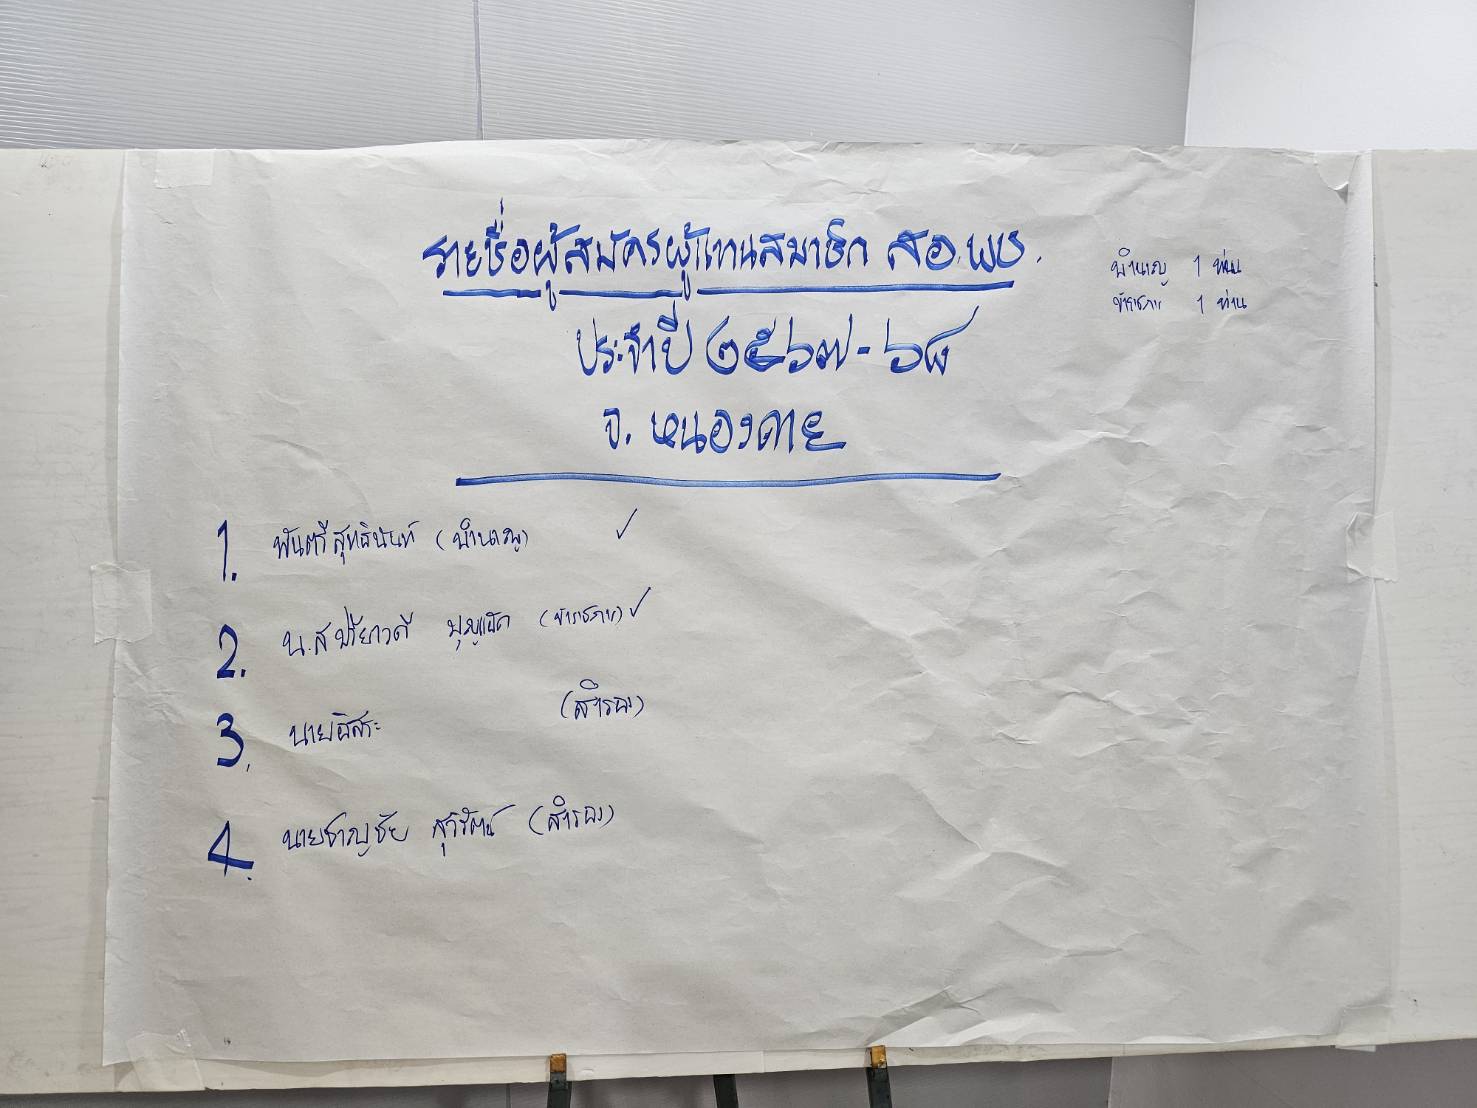 รายชื่อผู้สมัครผู้แทนสมาชิก สอ.พช.
ประจำปี ๒๕๖๗-๖๘
จ. หนองคาย
บำนาญ 1 ท่าน
ข้าราชการ 1 ท่าน
1. พันตรีสุทธินันท์ (บำนาญ) ✓
2. น.ส ปรียาวดี (ข้าราชการ) ✓
3. นายอิสระ (สำรอง)
4. นายชาญชัย สุวิรัตน์ (สำรอง)